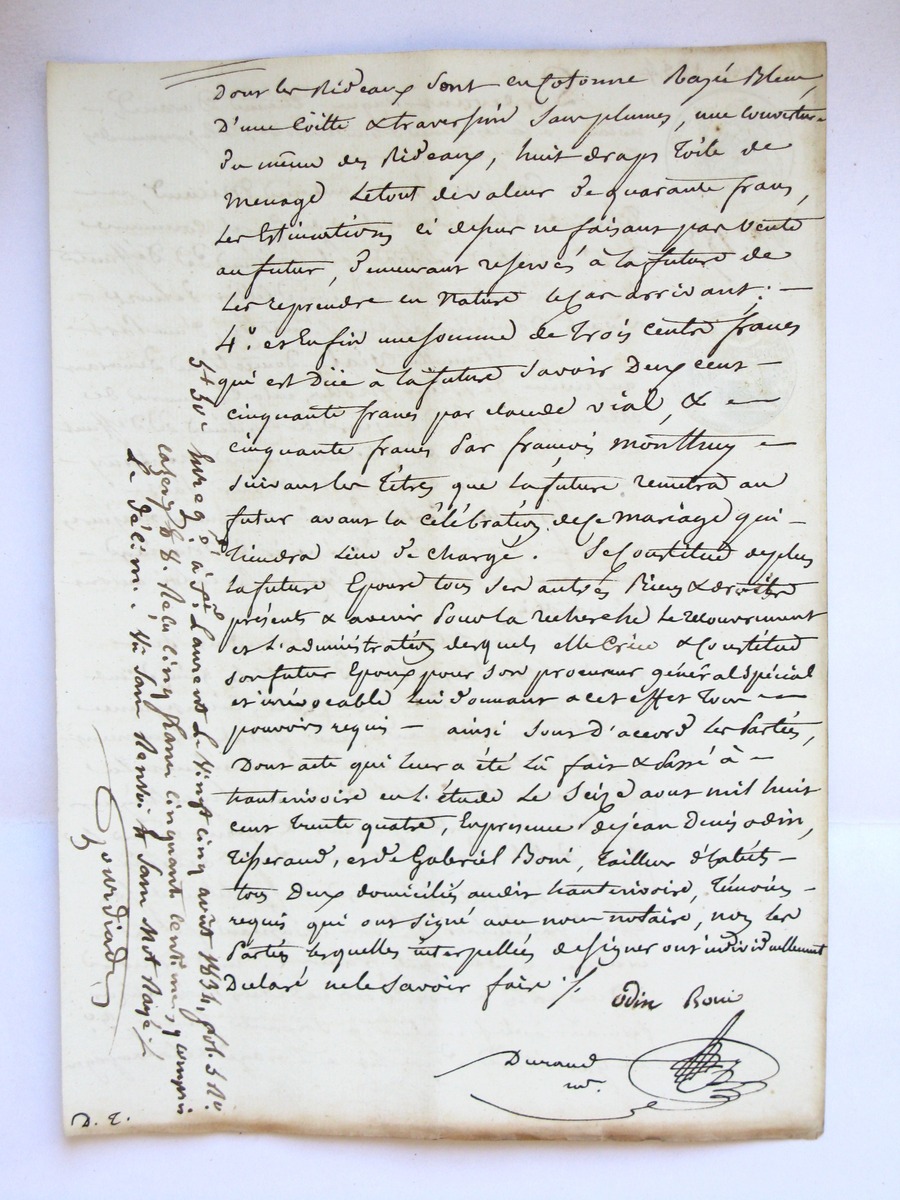 Dont les Rideaux sont en Cotonne Rayé Bleu,
D'une Coitte & traversin sans plumes, une couverture
du même des Rideaux, huit draps toile de
menage le tout de valeur de quarante francs,
Les Estimations ci dessus ne faisant pas vente
au futur, demeurant reservés à la future de
les reprendre en nature le Cas arrivant; —
4.° et Enfin une somme de trois cents francs
qui est Düe à la future savoir Deux cent —
cinquante francs par claude vial, & —
cinquante francs Par francois monthuy —
suivant les titres que la future remettra au
futur avant la Célébration de Ce mariage qui —
tiendra Lieu de charge. Se Constitue de plus
la future Epouse tous ses autres Biens & droits
présents & avenir Pour la recherche le recouvrement
et l'administration desquels elle Crée & Constitue
son futur Epoux pour son procureur général spécial
et irrévocable lui donnant a cet effet Tous —
pouvoirs requis — ainsi sont D'accord les Parties,
Dont acte qui leur a été lû fait & Passé à —
hauterivoire en l'étude le Seize aout mil huit
cent trente quatre, En presence de jean Denis odin,
Tisserand, et de Gabriel Boni, tailleur d'habits —
tous Deux domiciliés audit hauterivoire, témoins —
requis qui ont signé avec nous notaire, non les
Parties lesquelles interpellées de signer ont individuellement
Déclaré ne le Savoir faire ./.
odin Boni
Durand
no.
5430 Enreg. à St. Laurent le Vingt cinq aout 1834, fol. 5 Ro.
cases & 8. Reçu cinq francs cinquante centimes, y compris
Le décime. Un sans Renvoi & sans Mot Rayé ./.
Gourdiade
D. E.